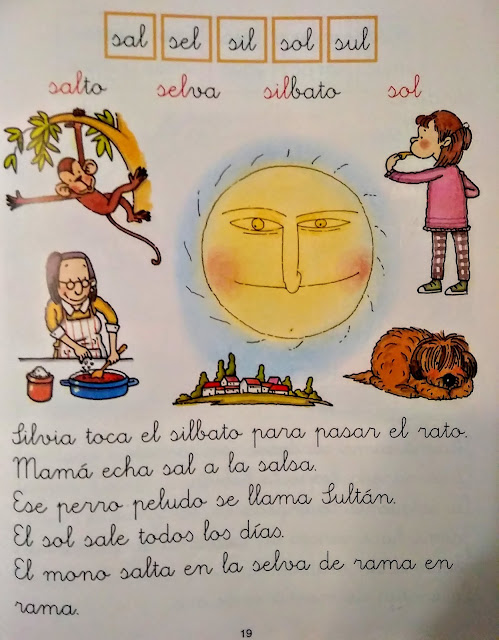 sal sel sil sol sul
salto selva silbato sol
Silvia toca el silbato para pasar el rato.
Mamá echa sal a la salsa.
Ese perro peludo se llama Sultán.
El sol sale todos los días.
El mono salta en la selva de rama en
rama.
19